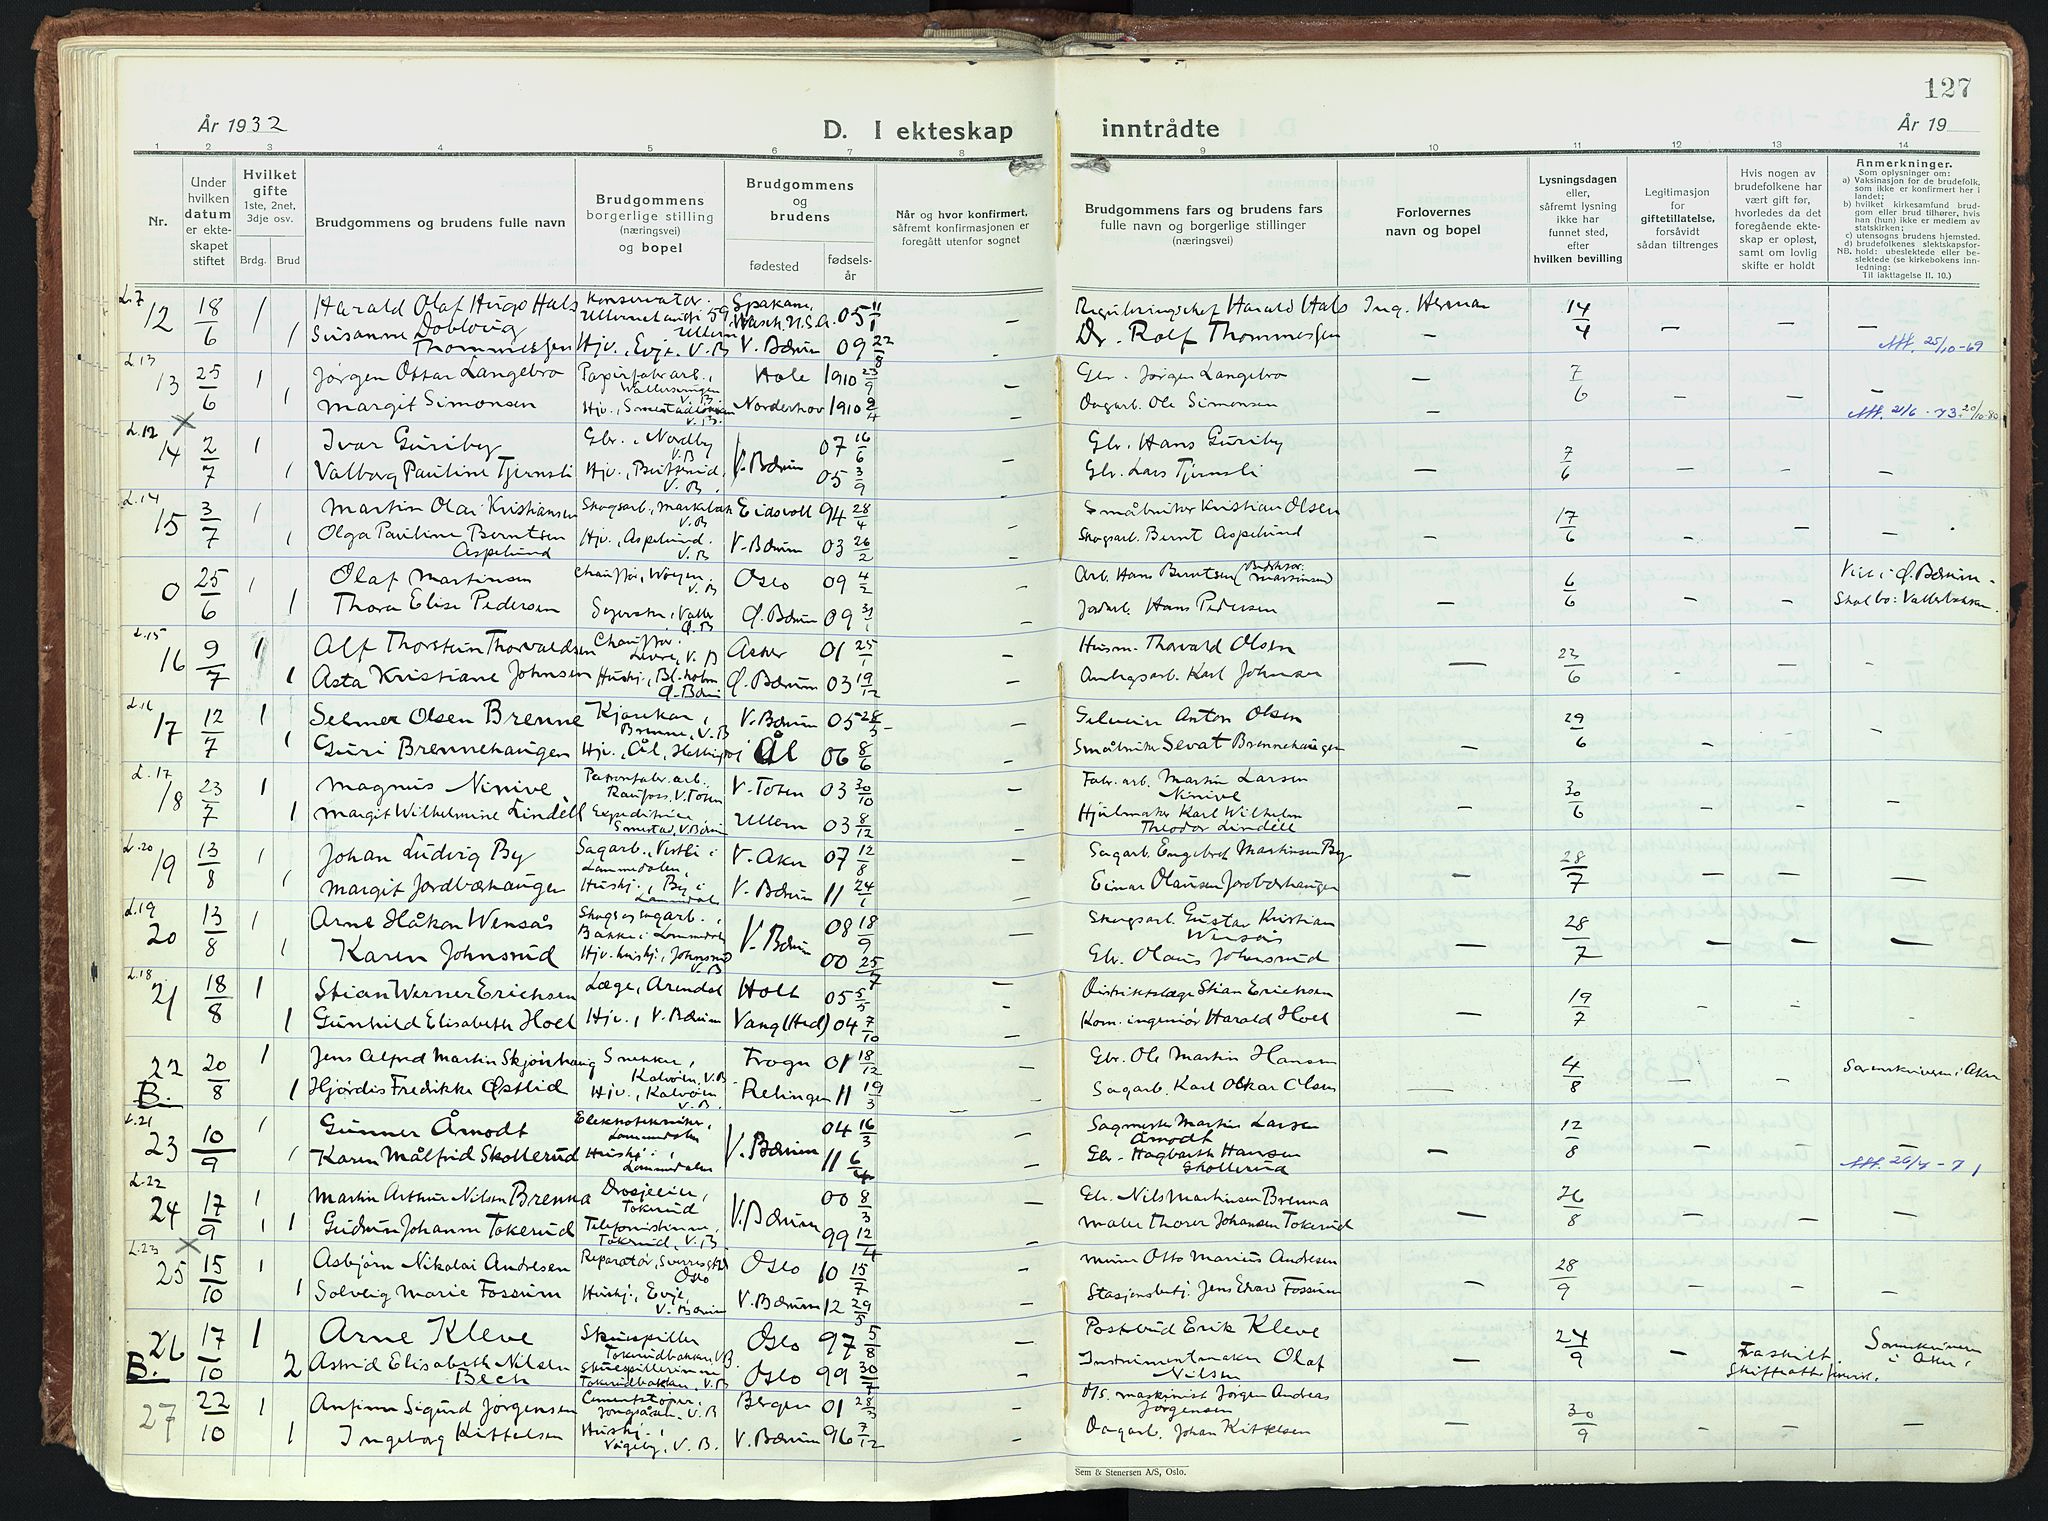 127
År 1932
D. I ekteskap inntrådte
År 19
1 2 3 4 5 6 7 8 9 10 11 12 13 14
Nr.
Under hvilken datum er ekteskapet stiftet
Hvilket gifte 1ste, 2net, 3dje osv.
Brdg. Brud
Brudgommens og brudens fulle navn
Brudgommens borgerlige stilling (næringsvei) og bopel
Brudgommens og brudens
fødested
fødselsår
Når og hvor konfirmert, såfremt konfirmasjonen er foregått utenfor sognet
Brudgommens fars og brudens fars fulle navn og borgerlige stillinger (næringsvei)
Forlovernes navn og bopel
Lysningsdagen eller, såfremt lysning ikke har funnet sted, efter hvilken bevilling
Legitimasjon for giftetillatelse, forsåvidt sådan tiltrenges
Hvis nogen av brudefolkene har vært gift før, hvorledes da det foregående ekteskap er opløst, samt om lovlig skifte er holdt
Anmerkninger.
Som oplysninger om:
a) Vaksinasjon for de brudefolk, som ikke er konfirmert her i landet;
b) hvilket kirkesamfund brudgom eller brud tilhører, hvis han (hun) ikke er medlem av statskirken;
c) utensogns brudens hjemsted.
d) brudefolkenes slektskapsforhold: ubeslektede eller beslektede (se kirkebokens innledning:
NB. Til iaktlagelse II. 10.)
L.7 12 18/6 1 Harald Olaf Hugo Hals Konservator Spokane, Wash. U.S.A. 05 11/1 Harald Hals Ing. Herman 14/4
1 Susanne Dobloug Thommessen Hjv., Evje, V.B V. Bærum 09 22/8 Dr. Rolf Thommessen 25/10-69
L.13 13 25/6 1 Jørgen Ottar Langebro Papirfabr.arb., V.B Hole 1910 23/9 Gbr. Jørgen Langebro 7/6
1 Margit Simonsen Hjv., V.B. Norderhov 1910 2/4 Dagarb. Ole Simonsen 21/6-73 20/10-80
L.12 14 2/7 1 Ivar Guriby Gbr., Nordby V.B 07 16/6 Gbr. Hans Guriby 7/6
1 Valborg Pauline Tjernsli Hjv., V.B. V. Bærum 05 3/9 Gbr. Lars Tjernsli
L.14 15 3/7 1 Martin Olai Kristiansen Skogsarb., V.B Eidsvoll 94 28/4 Småbruker Kristian Olsen 17/6
1 Olga Pauline Berntsen Aspelund Hjv., Aspelund. V.B V. Bærum 03 26/2 Skogsarb. Bernt Aspelund
0 25/6 1 Olaf Martinsen Chauffør, Wøyen, V.B Oslo 09 4/2 Arb. Hans Berntsen 6/6 Viet i Ø. Bærum
1 Thora Elise Pedersen Syerske, Valler Ø.B Ø. Bærum 09 31/1 Jordarb. Hans Pedersen Skal bo: Vallerbakken
L.15 16 9/7 1 Alf Thorstein Thorvaldsen Chauffør, V.B Asker 01 25/1 Husm. Thorvald Olsen 23/6
1 Asta Kristiane Johnsen Hushj., Bl.holm Ø. Bærum Ø. Bærum 03 19/12 Anlegsarb. Karl Johnsen
L.16 17 12/7 1 Selmer Olsen Brenne Kjørekar, Brenne, V.B V. Bærum 05 28/5 Anton Olsen 29/6
1 Guri Brennehaugen Hjv., Ål, Hallingdal Ål 06 8/6 Småbruker Sevat Brennehaugen
L.17 18 23/7 1 Magnus Ninive Patronfabr.arb. Raufoss, V. Toten V. Toten 03 30/10 Fabr.arb. Martin Larsen Ninive 30/6
1 Margit Wilhelmine Lindéll Expeditrice Smestad, V. Bærum Ullern 03 8/12 Hjulmaker Karl Wilhelm Theodor Lindéll
L.20 19 13/8 1 Johan Ludvig By Sagarb., Vestli i Lommedalen, V. Aker 07 12/8 Sagarb. Engebret Martinsen By 28/7
1 Margit Jordbærhaugen Hushj., By i Lommedalen V. Bærum 11 24/1 Einar Olausen Jordbærhaugen
L.19 20 13/8 1 Arne Håkon Wensås Skogs og sagarb., Bakke i Lommedalen 08 18/9 Skogsarb. Gustav Kristian Wensås 28/7
1 Karen Johnsrud Hjv. hushj., Johnsrud V.B V. Bærum 00 25/7 Gbr. Olaus Johnsrud
L.18 21 18/8 1 Stian Werner Erichsen Læge, Arendal Holt 05 5/5 Distriktslæge Stian Erichsen 19/7
1 Gunhild Elisabeth Hoel Hjv., V. Bærum Vang (Hed) 04 7/10 Kom.ingeniør Harald Hoel
22 B. 20/8 1 Jens Alfred Martin Skjønhaug Snekker, Kalvøen, V.B Frogn 01 18/12 Gbr. Ole Martin Hansen 4/8 Sorenskriveren i Aker
1 Hjørdis Fredrikke Østlid Hjv., Kalvøen V.B. Rælingen 11 19/3 Sagarb. Karl Oskar Olsen
L.21 23 10/9 1 Gunnar Årnodt Elektrotekniker, Lommedalen 04 16/3 Sagmester Martin Larsen Årnodt 12/8
1 Karen Målfrid Skollerud Hushj., Lommedalen V. Bærum 11 6/4 Gbr. Hagbarth Hansen Skollerud 26/4-71
L.22 24 17/9 1 Martin Arthur Nilsen Brenna Drosjeeier, Tokerud 00 8/3 Gbr. Nils Martinsen Brenna 26/8
1 1 Gudrun Johanne Tokerud Telefonistinne, Tokerud, V.B V. Bærum 99 12/4 Maler Thorer Johansen Tokerud
L.23 25 15/10 1 Asbjørn Nikolai Andresen Reparatør, Oslo Oslo 10 15/7 Murer Otto Marius Andresen 28/9
1 Solveig Marie Fossum Hushj., Evje, V. Bærum V. Bærum 12 29/5 Stasjonsbetj. Jens Edvard Fossum
26 B. 17/10 1 Arne Kleve Skuespiller Tokerudbakken, V.B. Oslo 97 5/8 Postbud Erik Kleve 24/9 Fraskilt. Sorenskriveren i Aker,
2 Astrid Elisabeth Nilsen Bech Skuespillerinne Tokerudbakken, V.B Oslo 99 30/7 Instrumentmaker Olaf Nilsen
27 22/10 1 Anfinn Sigurd Jørgensen Cementstøper, Jongsåsen, V.B Bergen 01 28/3 maskinist Jørgen Andreas Jørgensen 30/9
1 Ingeborg Kittelsen Hushj., V.B. V. Bærum 96 7/12 Dagarb. Johan Kittelsen
Sem & Stenersen A/S, Oslo.